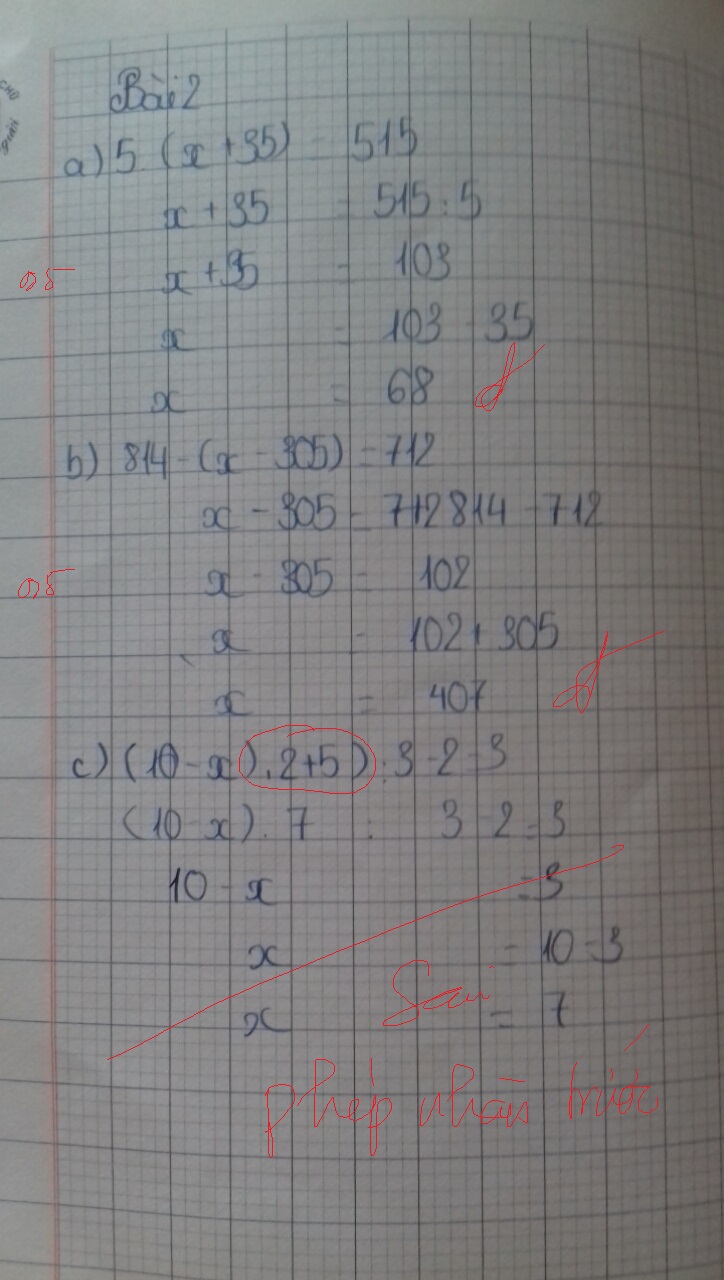 Bài 2
a) 5 (x + 35) = 515
x + 35 = 515 : 5
0,5
x + 35 = 103
x = 103 - 35
x = 68 đ
b) 814 - (x - 305) = 712
x - 305 = 712 814 - 712
0,5
x - 305 = 102
x = 102 + 305
x = 407 đ
c) (10 - x) . 2 + 5) : 3 - 2 = 3
(10 - x) . 7 : 3 - 2 = 3
10 - x = 3
x = 10 - 3
Sai
x = 7
phép nhân trước